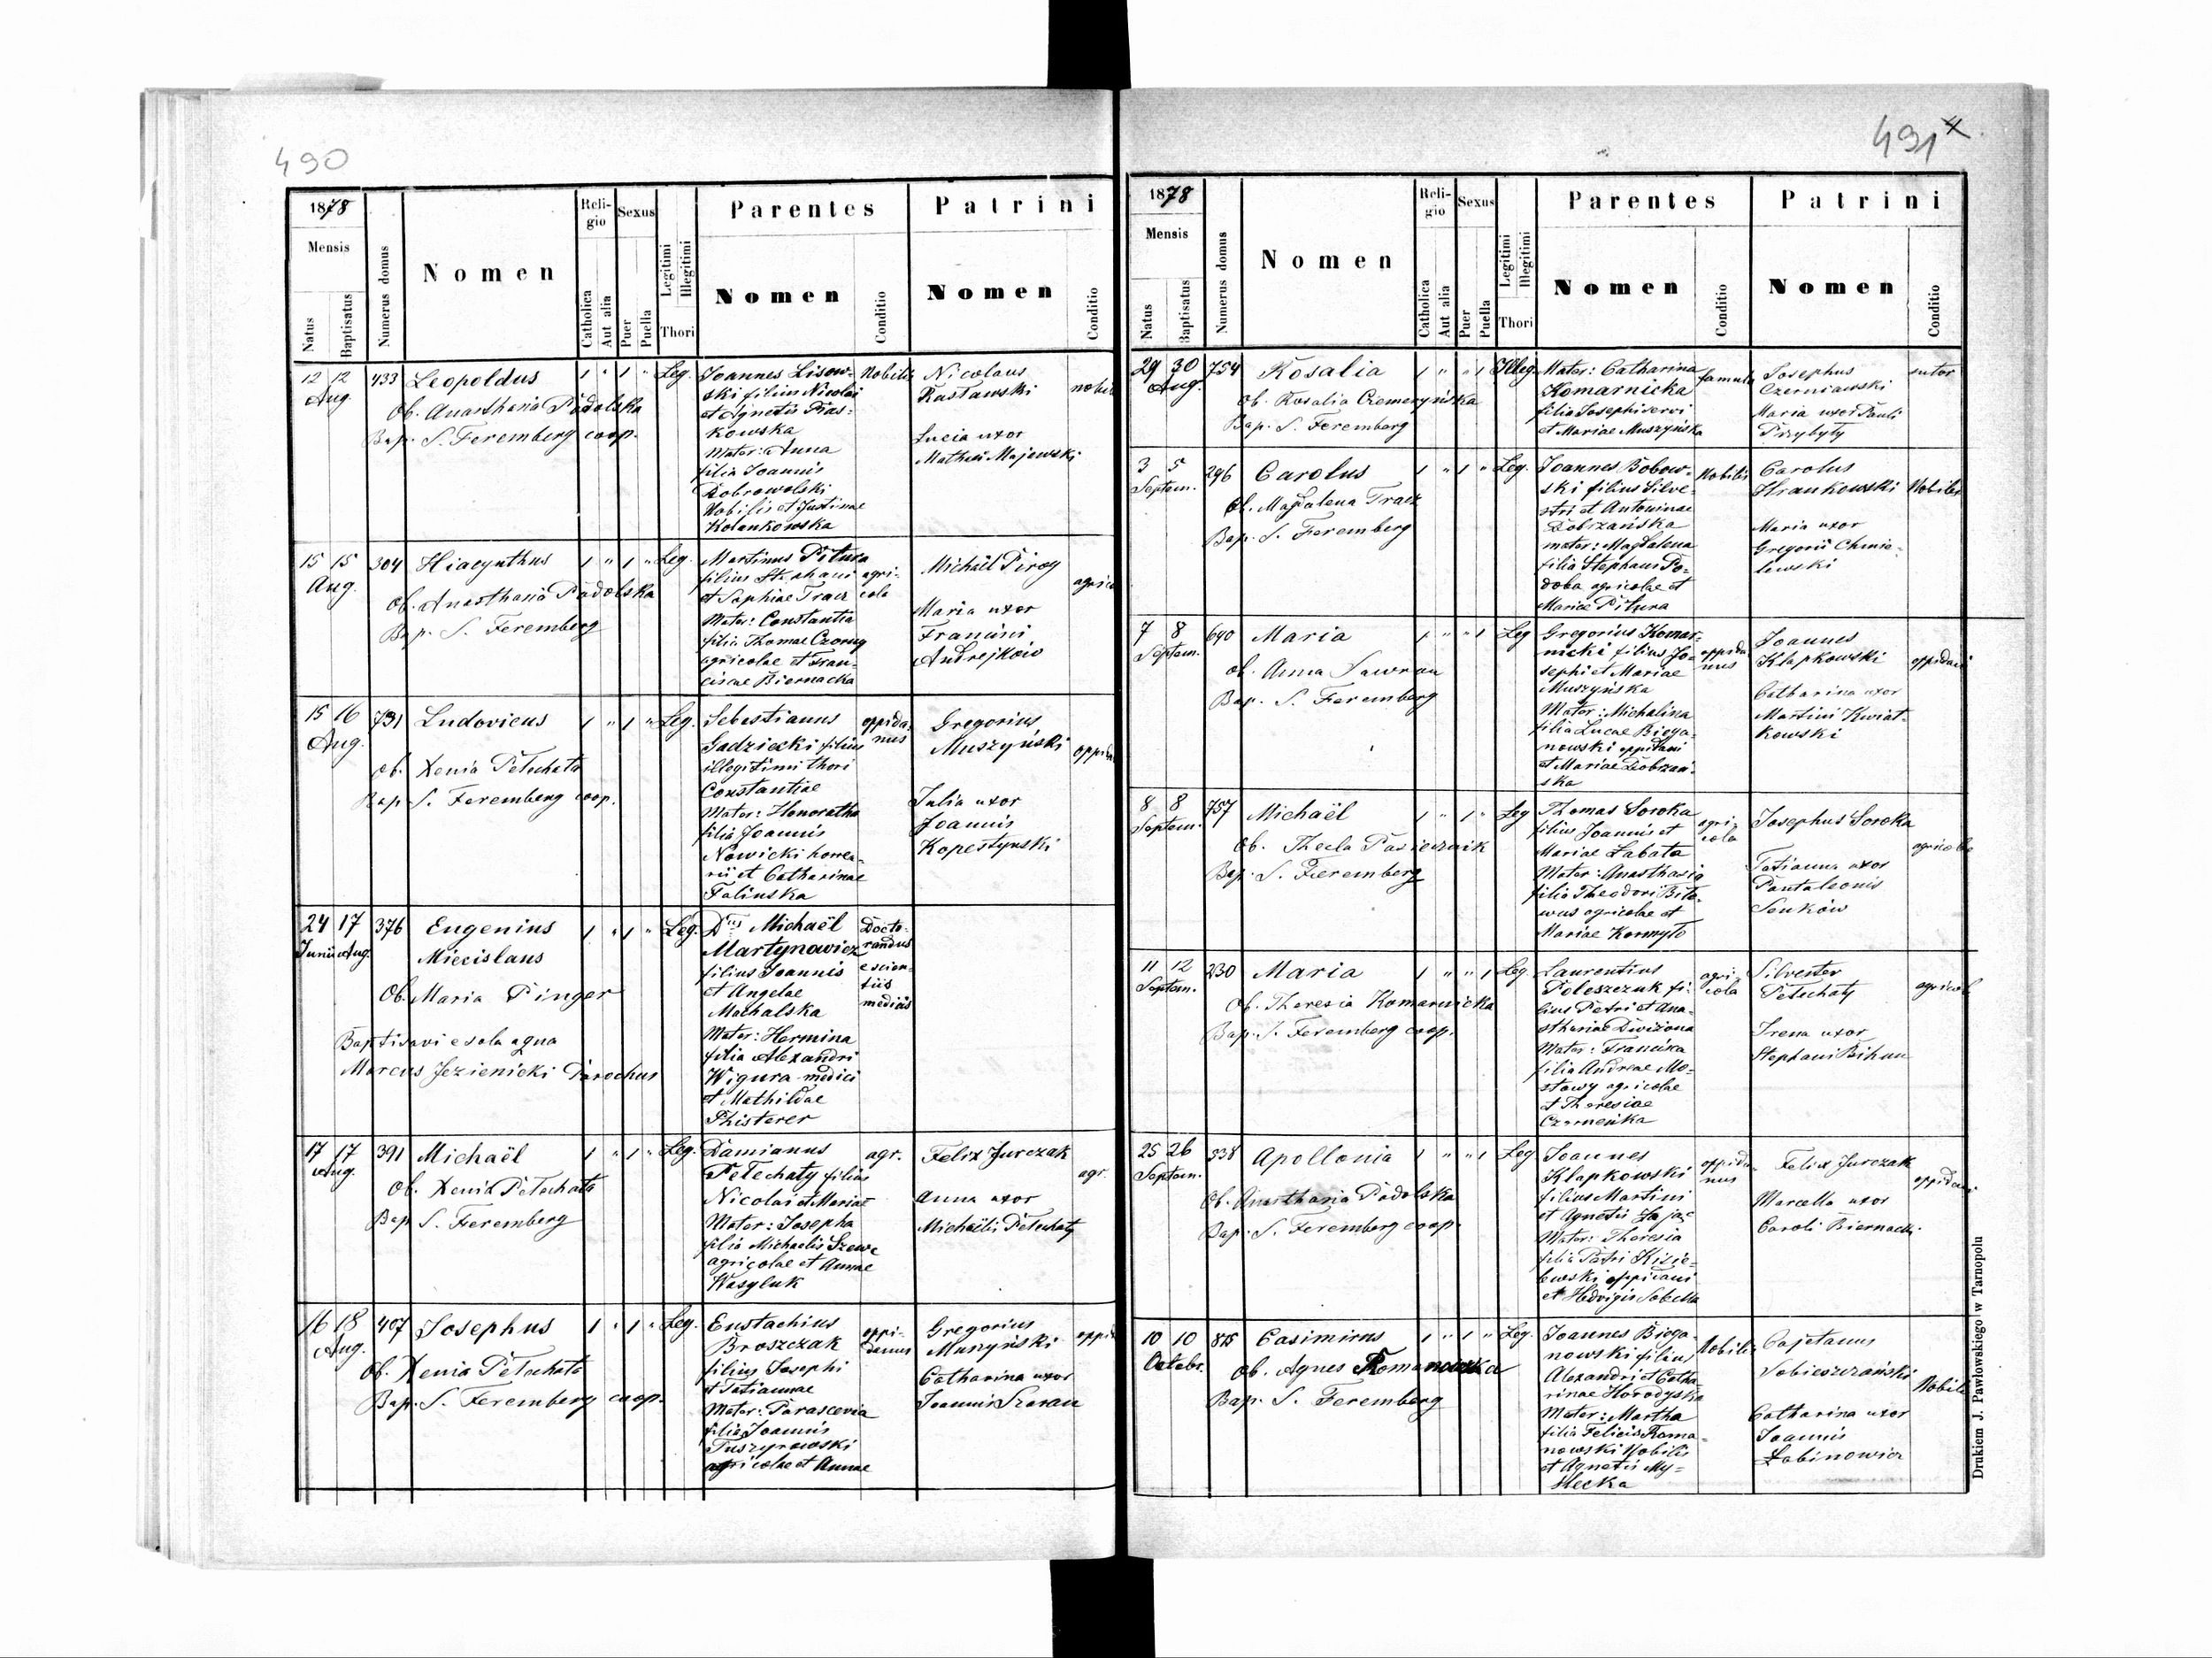 490
1878
Mensis
Natus
Baptisatus
Numerus domus
Nomen
Religio
Catholica
Aut alia
Sexus
Puer
Puella
Legitimi
Illegitimi
Thori
Parentes
Nomen
Conditio
Patrini
Nomen
Conditio
12 12 433 Leopoldus 1 " 1 " Leg.
Aug.
Ob. Anasthasia Padolska
Bap. S. Feremberg coop.
Joannes Lisow-
ski filius Nicolai
et Agnetis Pias-
kowska
Mater: Anna
filia Joannis
Dobrowolski
Nobilis et Justinae
Kolankowska
Nobilis
Nicolaus
Rastawski
Lucia uxor
Mathei Majewski
nobi
15 15 304 Hiacynthus 1 " 1 " Leg.
Aug.
Ob. Anasthasia Padolska
Bap. S. Feremberg
Martinus Pitura
filius Stephani
et Sophiae Tracz
Mater: Constantia
filia Thomae Czorny
agricolae et Fran-
ciscae Biernacka
agri-
cola
Michaël Pirog
Maria uxor
Francisci
Andrejkow
agrico
15 16 731 Ludovicus 1 " 1 " Leg.
Aug.
Ob. Xenia Petechata
Bap. S. Feremberg coop.
Sebestianus
Gadziecki filius
illegitimi thori
Constantiae
Mater: Honoratha
filia Joannis
Nowicki horrea-
rii et Catharinae
Falinska
oppida-
nus
Gregorius
Muszyński
Julia uxor
Joannis
Kopestynski
oppida
24 17 376 Eugenius 1 " 1 " Leg.
Junii Aug.
Miecislaus
Ob. Maria Pinger
Baptisavi e sola aqua
Marcus Jezienicki Parochus
Dnus Michaël
Martynowicz
filius Joannis
et Angelae
Machalska
Mater: Hermina
filia Alexandri
Wigura medici
et Mathildae
Phisterer
Docto-
randus
e scien-
tiis
medicis
17 17 391 Michaël 1 " 1 " Leg.
Aug.
Ob. Xenia Petechata
Bap. S. Feremberg
Damianus
Petechaty filius
Nicolai et Mariae
Mater: Josepha
filia Michaelis Szewc
agricolae et Annae
Wasyluk
agr.
Felix Jurczak
Anna uxor
Michaëlis Petechaty
agr.
16 18 407 Josephus 1 " 1 " Leg.
Aug.
Ob. Xenia Petechata
Bap. S. Feremberg coop.
Eustachius
Broszczak
filius Josephi
et Tatiannae
Mater: Parascevia
filia Joannis
Puszynowski
agricolae et Annae
oppi-
danus
Gregorius
Muszyński
Catharina uxor
Joannis Szaran
oppid
491
1878
Mensis
Natus
Baptisatus
Numerus domus
Nomen
Religio
Catholica
Aut alia
Sexus
Puer
Puella
Legitimi
Illegitimi
Thori
Parentes
Nomen
Conditio
Patrini
Nomen
Conditio
29 30 754 Rosalia 1 " " 1 Illeg.
Aug.
Ob. Rosalia Czemeryńska
Bap. S. Feremberg
Mater: Catharina
Komarnicka
filia Josephi servi
et Mariae Muszyńska
famula
Josephus
Czerniawski
Maria uxor Pauli
Przybyty
sutor
3 5 296 Carolus 1 " 1 " Leg.
Septem.
Ob. Magdalena Tracz
Bap. S. Feremberg
Joannes Bobow-
ski filius Silve-
stri et Antoninae
Dobrzańska
mater: Magdalena
filia Stephani Po-
doba agricolae et
Mariae Pitura
Nobilis
Carolus
Hrankowski
Maria uxor
Gregorii Chmie-
lewski
Nobiles
7 8 640 Maria 1 " " 1 Leg
Septem.
Ob. Anna Sawran
Bap. S. Feremberg
Gregorius Komar-
nicki filius Jo-
sephi et Mariae
Muszyńska
Mater: Michalina
filia Lucae Biega-
nowski oppidani
et Mariae Dobrzań-
ska
oppida
nus
Joannes
Klapkowski
Catharina uxor
Martini Kwiat-
kowski
oppidani
8 8 757 Michaël 1 " 1 " Leg
Septem.
Ob. Thecla Pasiecznik
Bap. S. Feremberg
Thomas Soroka
filius Joannis et
Mariae Labata
Mater: Anasthasia
filia Theodori Bito-
wus agricolae et
Mariae Kormyto
agri-
cola
Josephus Soroka
Tatianna uxor
Pantaleonis
Senków
agricolae
11 12 230 Maria 1 " " 1 Leg.
Septem.
Ob. Theresia Komarnicka
Bap. S. Feremberg coop.
Laurentius
Poloszczuk fi-
lius Petri et Ana-
sthasiae Diwizona
Mater: Francisca
filia Andreae Mo-
stowy agricolae
et Theresiae
agri
cola
Silvester
Petechaty
Irena uxor
Stephani Bihun
agricol
25 26 338 Apollonia 1 " " 1 Leg
Septem.
Ob. Anasthasia Padolska
Bap. S. Feremberg coop.
Joannes
Klapkowski
filius Martini
et Agnetis Zając
Mater: Theresia
filia Petri Kisie-
lewski oppidani
et Hedvigis Sobella
oppida
nus
Felix Jurczak
Marcella uxor
Caroli Biernacki
oppidani
10 10 Casimirus 1 " 1 " Leg.
Octobr.
Ob. Agnes Romanowska
Bap. S. Feremberg
Joannes Biega-
nowski filius
Alexandri et Catha-
rinae Horodyska
Mater: Martha
filia Felicis Roma-
nowski Nobilis
et Agnetis My-
słecka
Nobilis
Cajetanus
Sobieszczański
Catharina uxor
Joannis
Łabinowicz
Nobile
Drukiem J. Pawłowskiego w Tarnopolu